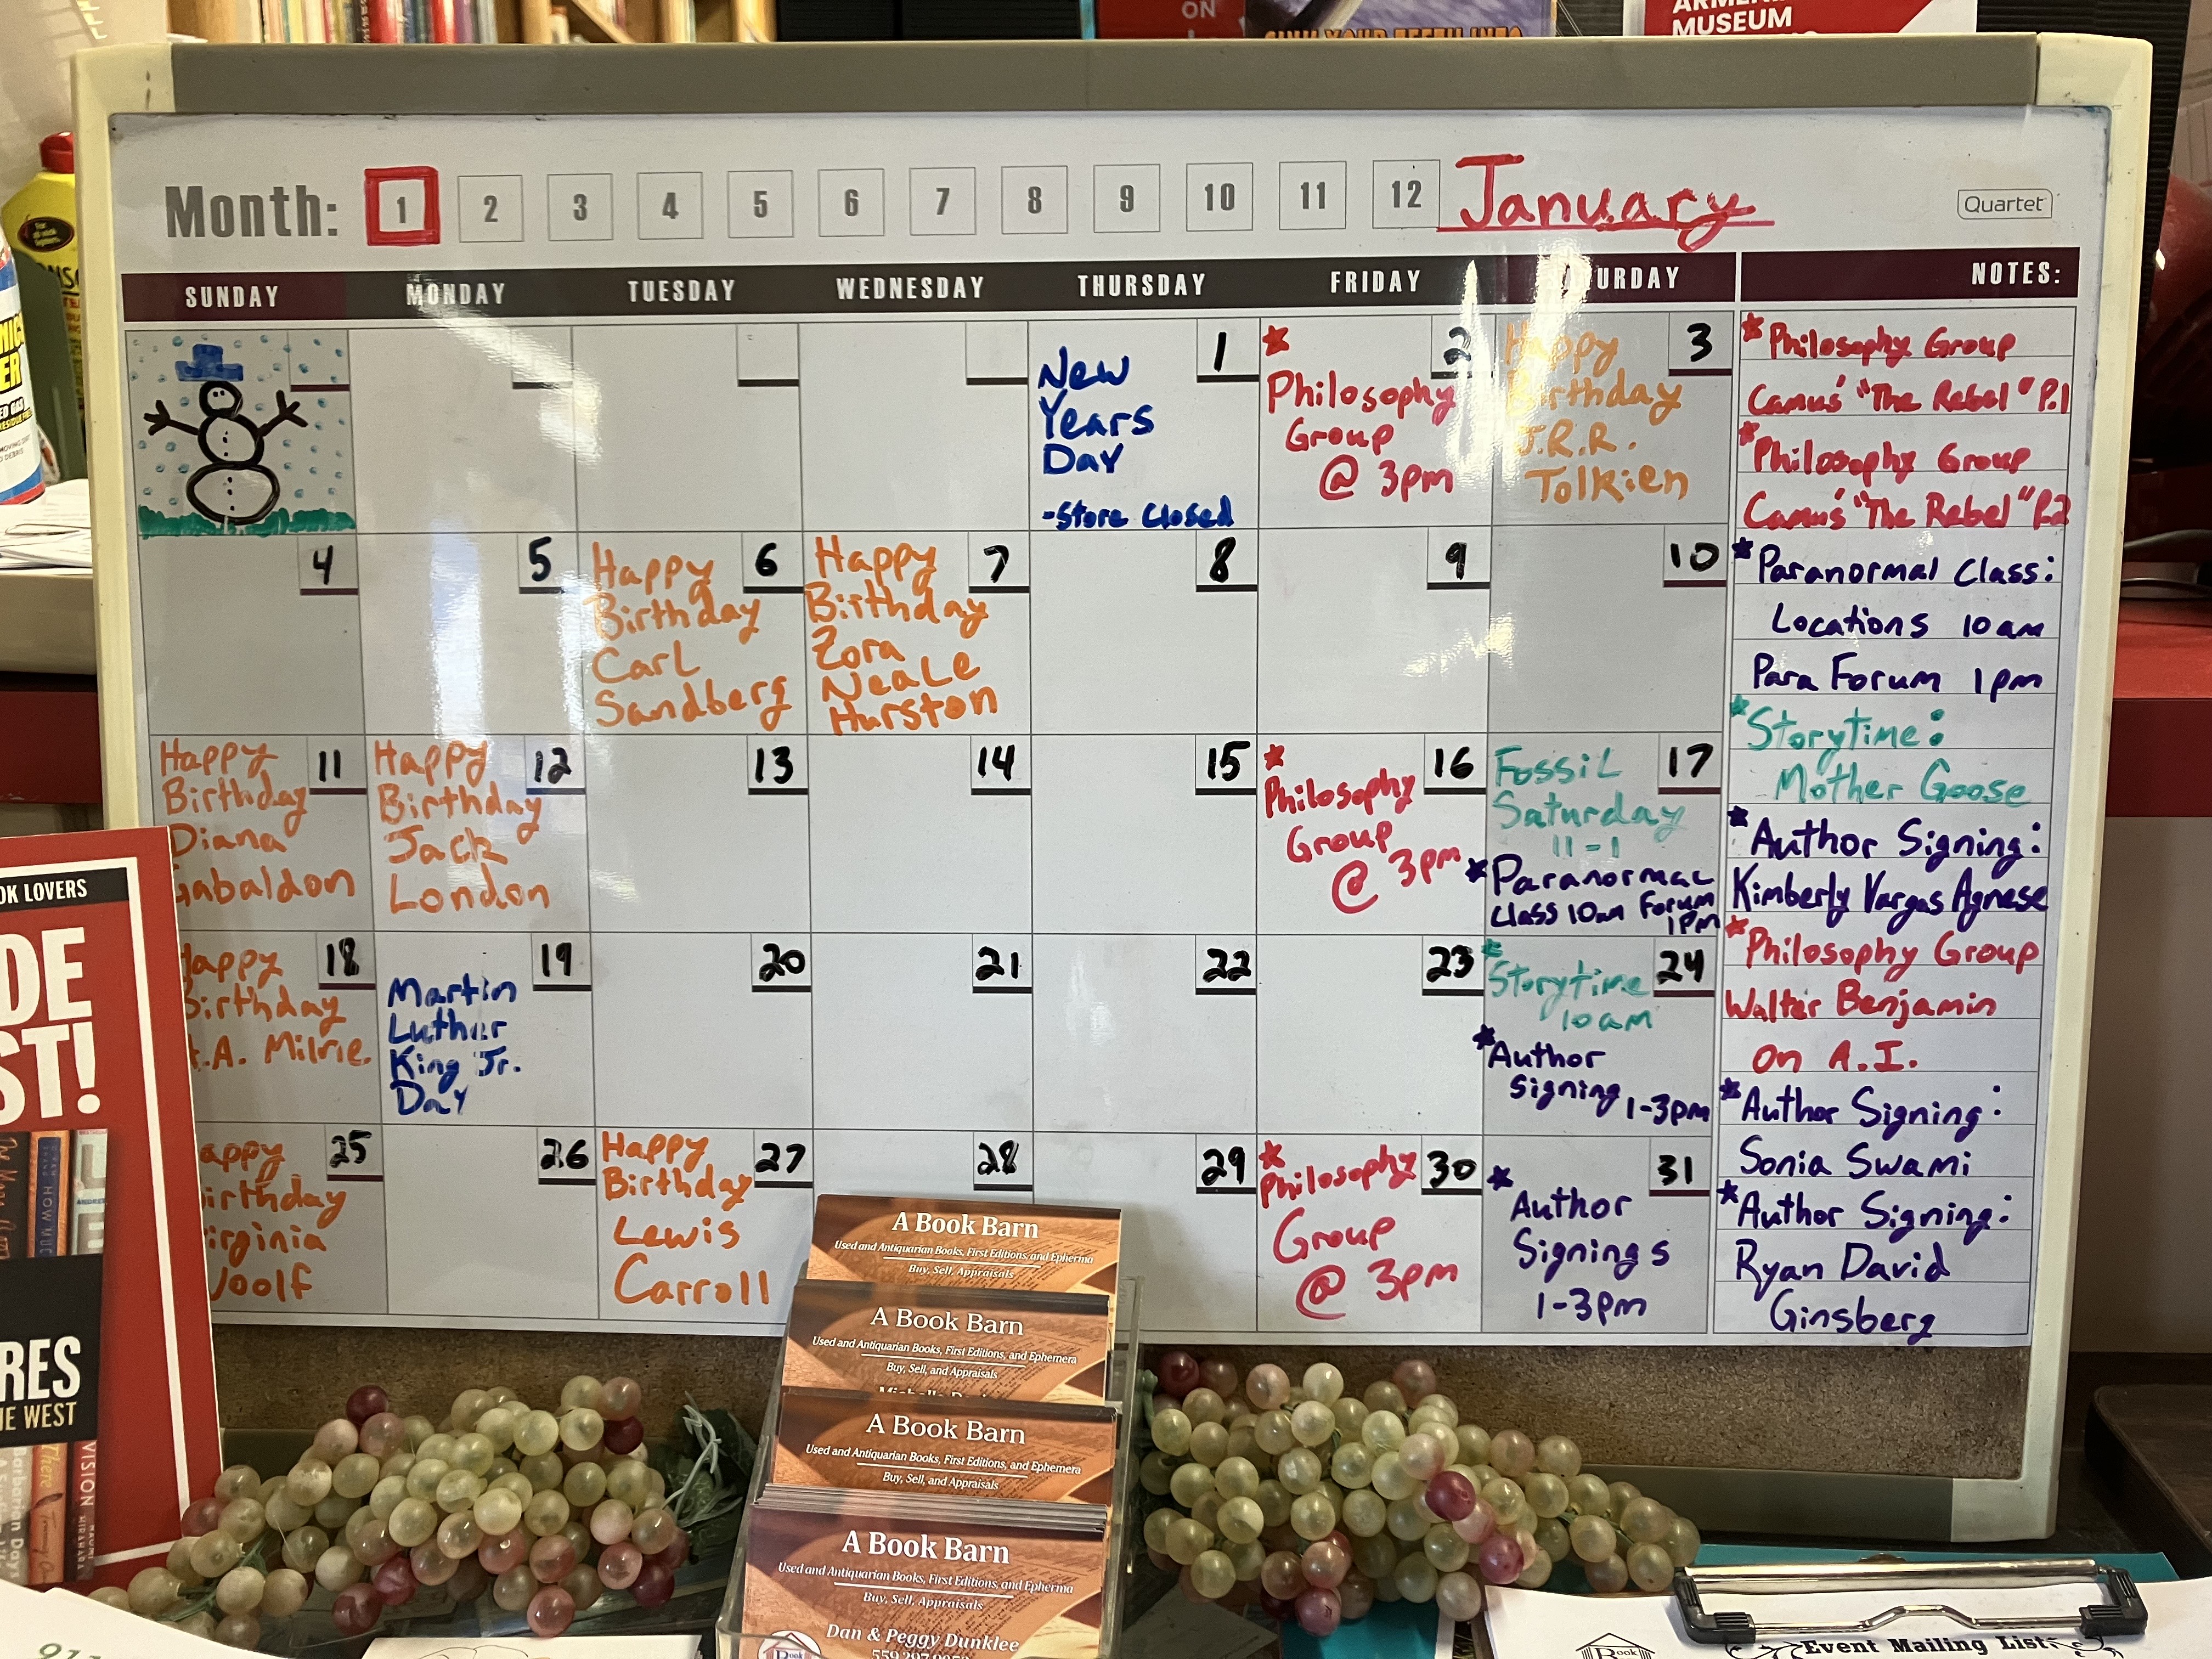 ON
MUSEUM
Month: 1 2 3 4 5 6 7 8 9 10 11 12 January
Quartet
SUNDAY MONDAY TUESDAY WEDNESDAY THURSDAY FRIDAY NOTES:
1
New
Years
Day
-Store Closed
2
Philosophy
Group
@ 3pm
3
Happy
Birthday
J.R.R.
Tolkien
4
5
6
Happy
Birthday
Carl
Sandberg
7
Happy
Birthday
Zora
Neale
Hurston
8
9
10
11
Happy
Birthday
Diana
Gabaldon
12
Happy
Birthday
Jack
London
13
14
15
16
Philosophy
Group
@ 3pm
17
Fossil
Saturday
11-1
Paranormal
Class 10am Forum
1pm
18
Happy
Birthday
A.A. Milne.
19
Martin
Luther
King Jr.
Day
20
21
22
23
24
Storytime
10am
Author
Signing 1-3pm
25
Happy
Birthday
Virginia
Woolf
26
27
Happy
Birthday
Lewis
Carroll
28
29
30
Philosophy
Group
@ 3pm
31
Author
Signings
1-3pm
Philosophy Group
Camus' "The Rebel" P.1
Philosophy Group
Camus' "The Rebel" P.2
Paranormal Class:
Locations 10am
Para Forum 1pm
Storytime:
Mother Goose
Author Signing:
Kimberly Vargas Agnese
Philosophy Group
Walter Benjamin
on A.I.
Author Signing:
Sonia Swami
Author Signing:
Ryan David
Ginsberg
OK LOVERS
DE
ST!
RES
HE WEST
A Book Barn
Used and Antiquarian Books, First Editions, and Epherma
Buy, Sell, Appraisals
A Book Barn
Used and Antiquarian Books, First Editions, and Ephemera
Buy, Sell, and Appraisals
A Book Barn
Used and Antiquarian Books, First Editions, and Ephemera
Buy, Sell, and Appraisals
A Book Barn
Used and Antiquarian Books, First Editions, and Epherma
Buy, Sell, Appraisals
Dan & Peggy Dunklee
Book
Event Mailing List